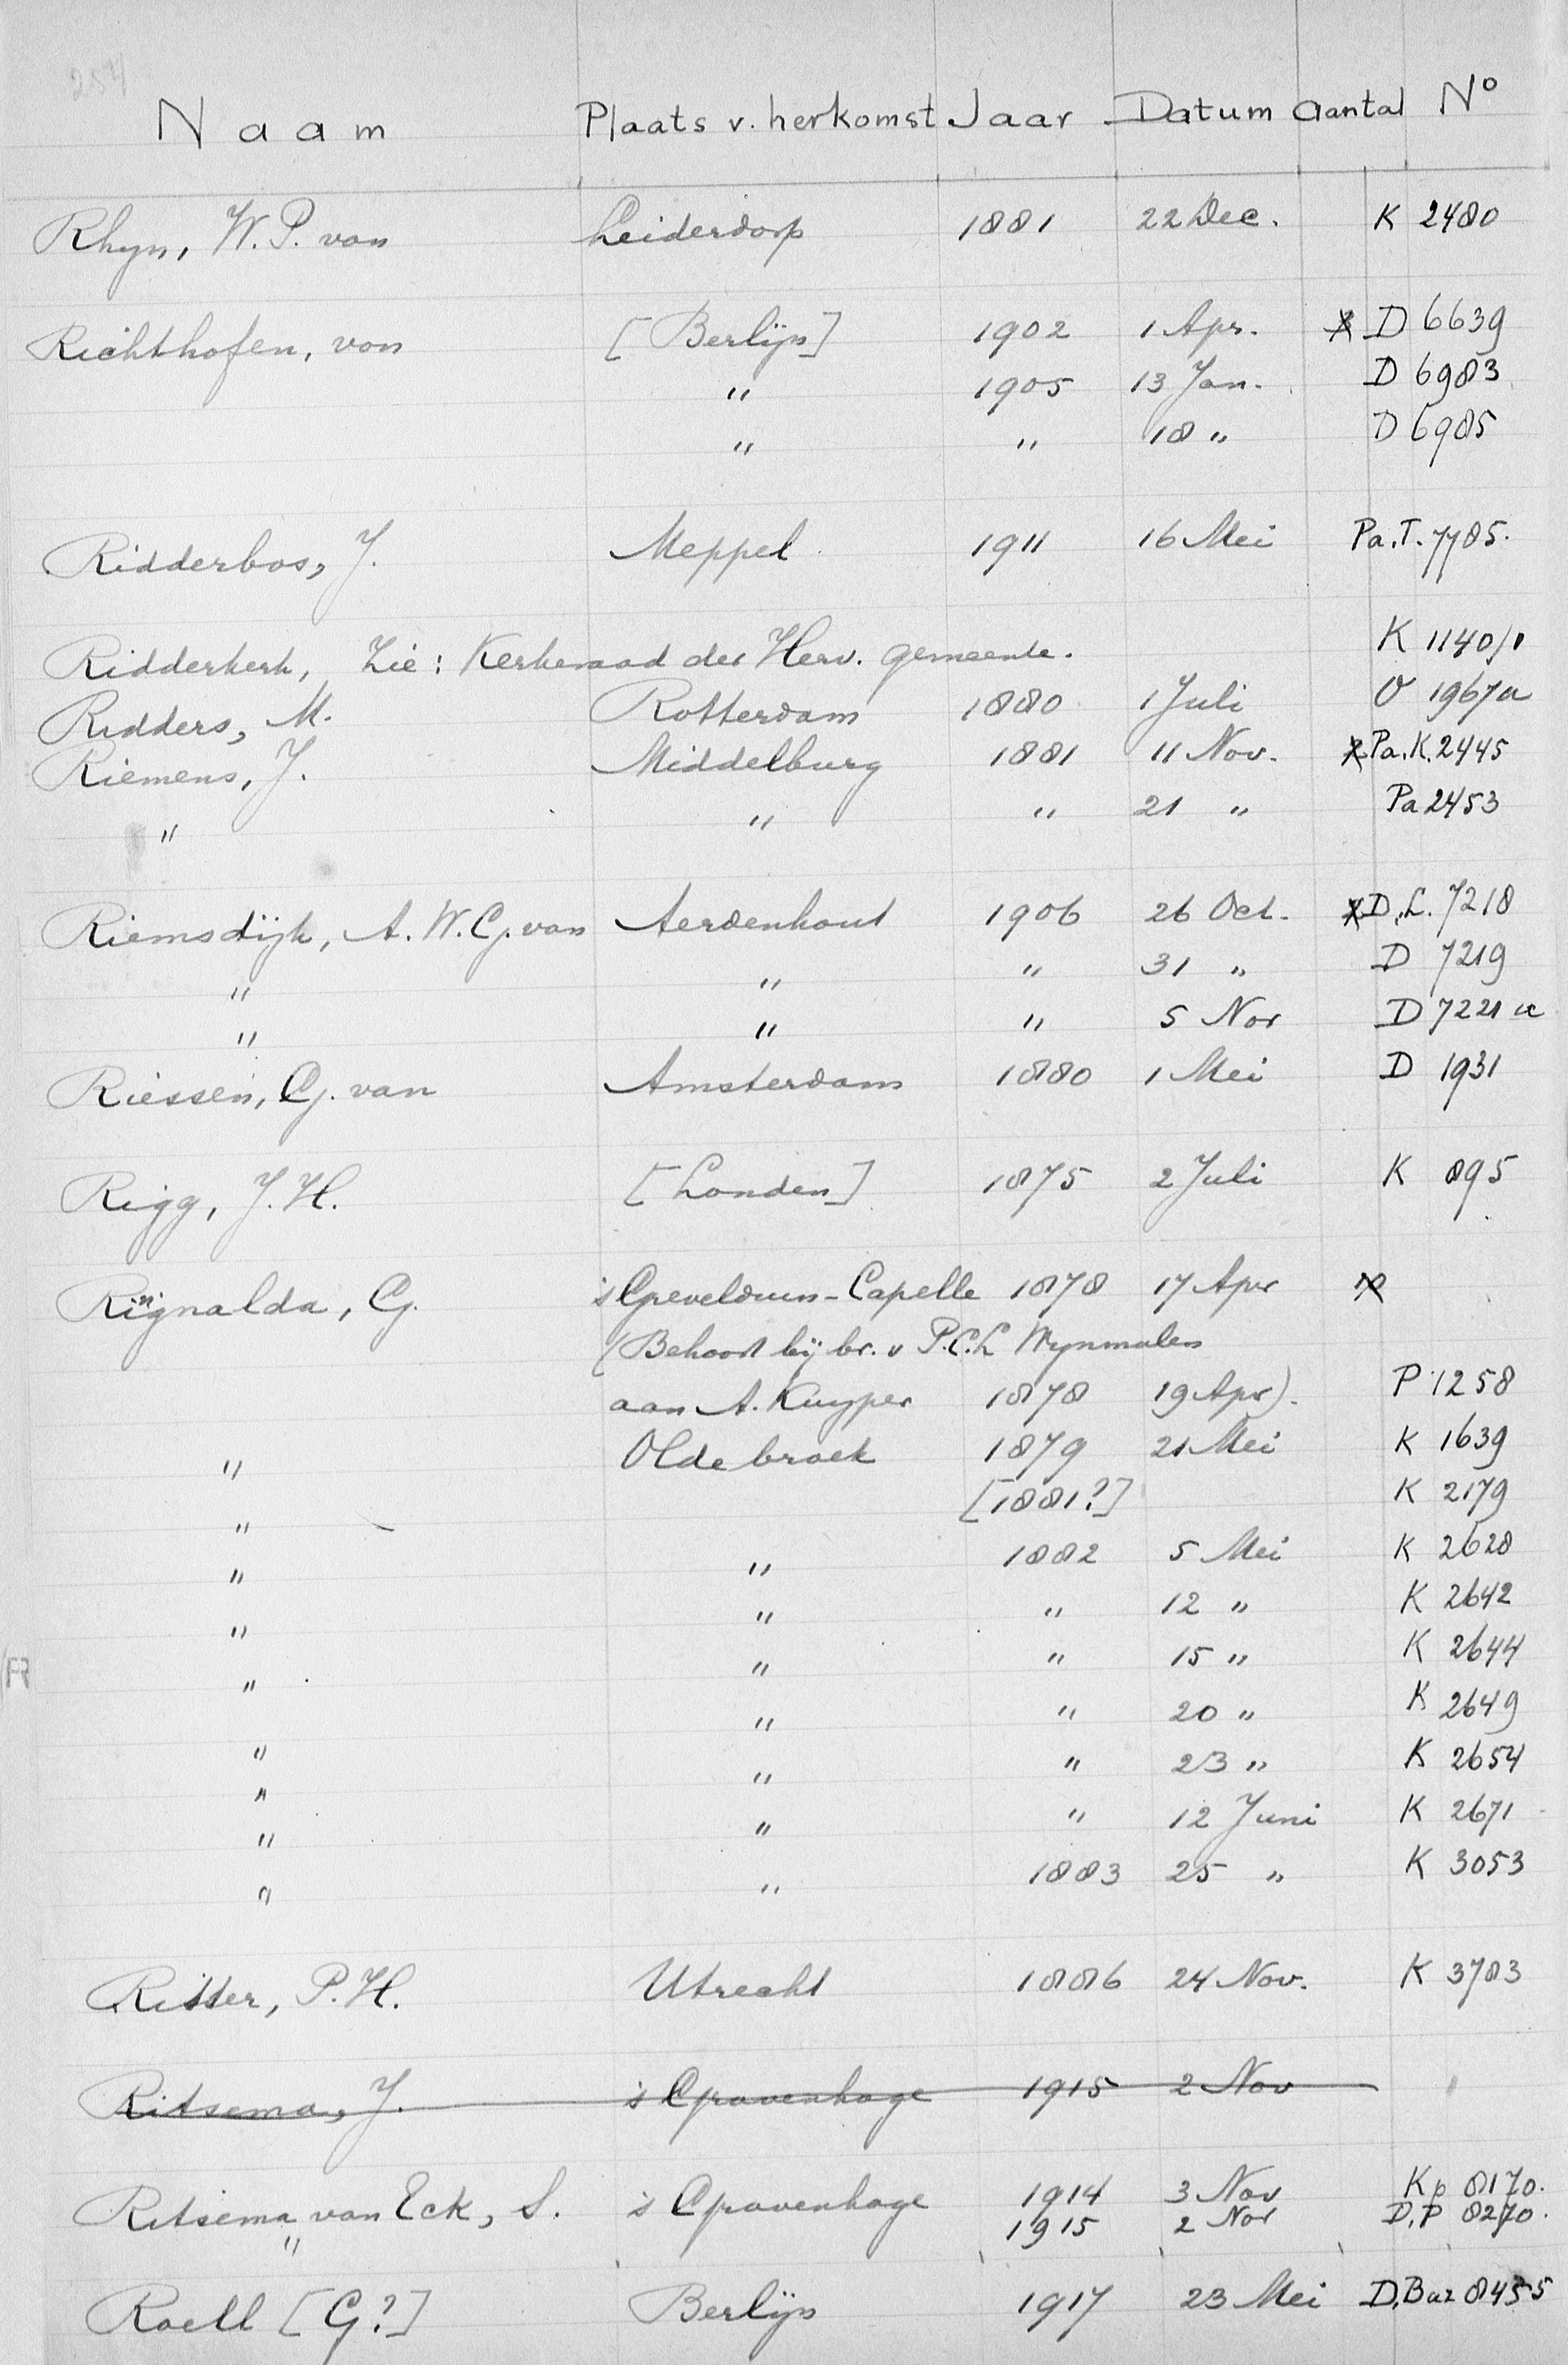 254
Naam Plaats v. herkomst Jaar Datum Aantal No
Rhyn, W. P. van Leiderdorp 1881 22 Dec. K 2480
Richthofen, von [Berlijn] 1902 1 Apr. D 6639
" 1905 13 Jan. D 6983
" " 18 " D 6985
Ridderbos, J. Meppel 1911 16 Mei Pa.T. 7785.
Ridderkerk, Zie: Kerkeraad der Herv. gemeente. K 1140/1
Ridders, M. Rotterdam 1880 1 Juli O 1967a
Riemens, J. Middelburg 1881 11 Nov. Pa.K. 2445
" " " 21 " Pa 2453
Riemsdijk, A. W. G. van Aerdenhout 1906 26 Oct. D.L. 7218
" " " 31 " D 7219
" " " 5 Nov D 7221a
Riessen, G. van Amsterdam 1880 1 Mei D 1931
Rigg, J. H. [Londen] 1875 2 Juli K 895
Ringnalda, G. 's Greveldum-Capelle 1878 17 Apr
(Behoort bij br. v P.C.L Wynmalen
aan A. Kuyper 1878 19 Apr). P 1258
" Oldebroek 1879 21 Mei K 1639
" [1881?] K 2179
" " 1882 5 Mei K 2628
" " " 12 " K 2642
" " " 15 " K 2644
" " " 20 " K 2649
" " " 23 " K 2654
" " " 12 Juni K 2671
" " 1883 25 " K 3053
Ritter, P. H. Utrecht 1886 24 Nov. K 3783
Ritsema, J. 's Gravenhage 1915 2 Nov
Ritsema van Eck, S. 's Gravenhage 1914 3 Nov Kp 8170.
" 1915 2 Nov D.P 8270.
Roell [G?] Berlijn 1917 23 Mei D.Buz 8455
FR